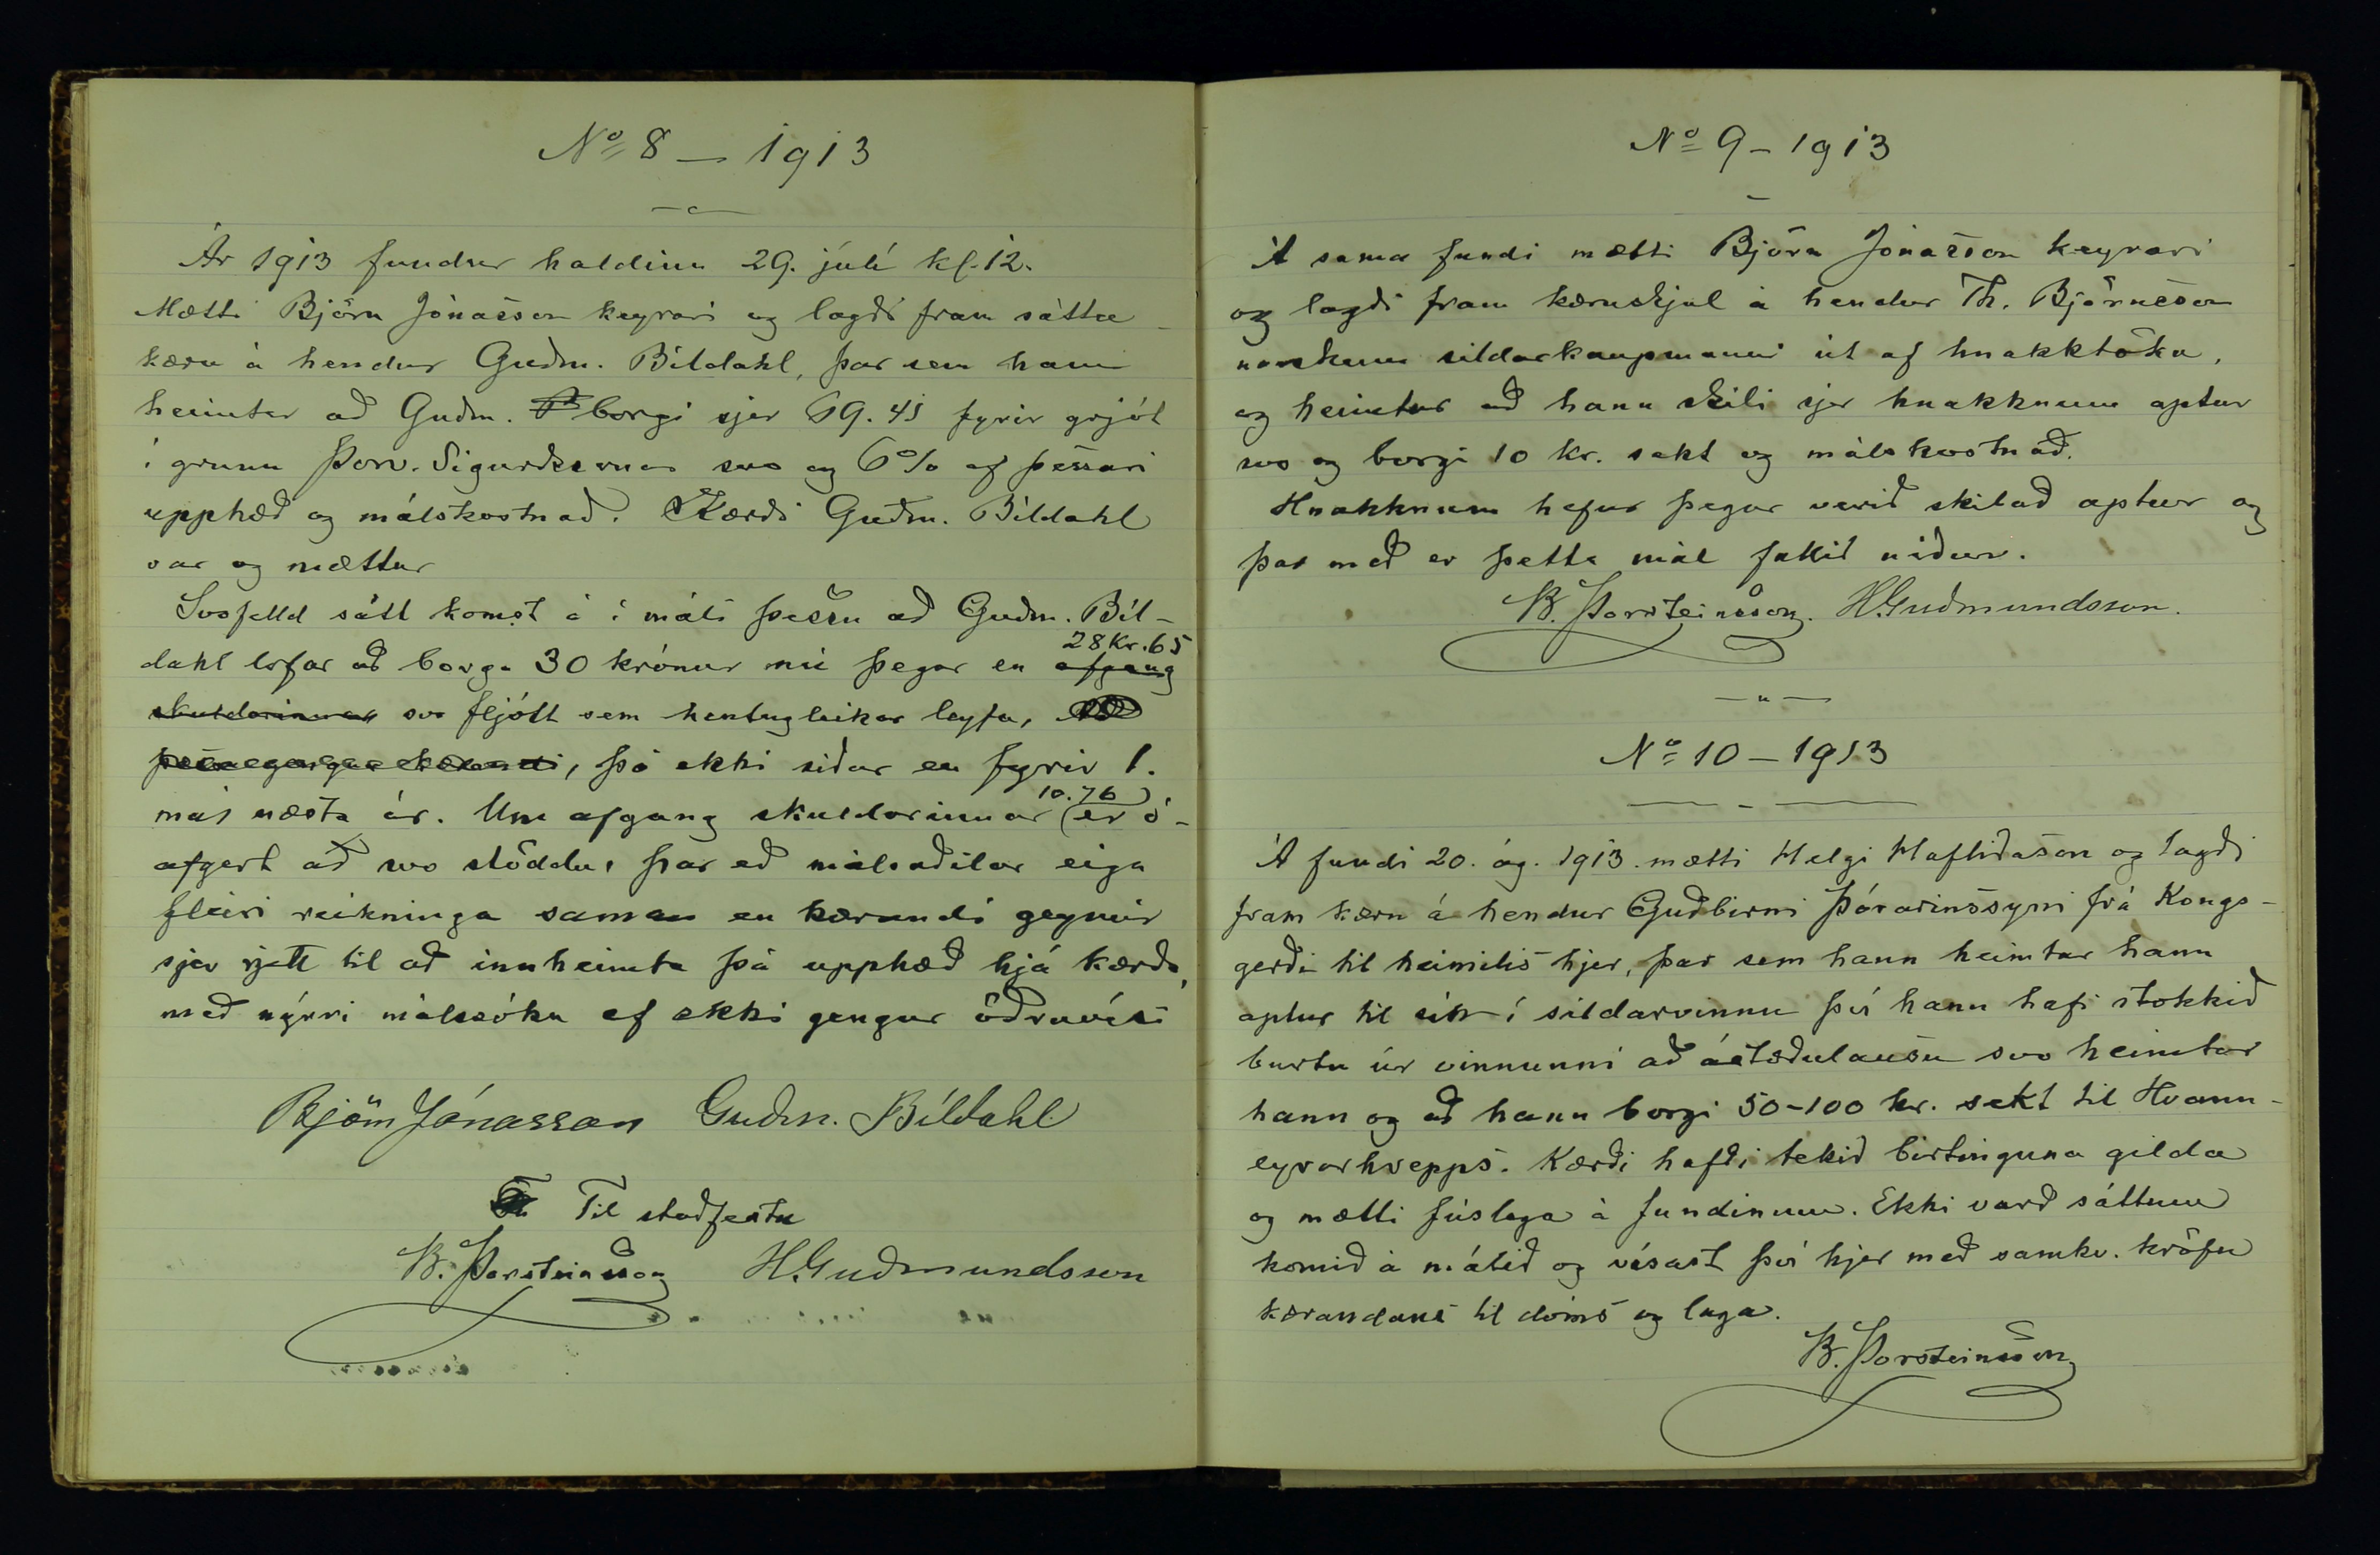 No 8 — 1913
Ár 1913 fundur haldinn 29. júlí kl. 12.
Mætti Björn Jónasson keyrari og lagði fram sátta-
kæru á hendur Guðm. Bíldahl, þar sem hann
heimtar að Guðm. borgi sjer 69.41 fyrir grjót
í grunn Þorv. Sigurðssonar svo og 6% af þessari
upphæð og málskostnað. Kærði Guðm. Bíldahl
var og mættur
Svofelld sátt komst á í máli þessu að Guðm. Bíl-
dahl lofar að borga 30 krónur nú þegar en afgang 28 kr. 65
skuldarinnar svo fljótt sem hentugleikar leyfa,
þó ekki síðar en fyrir 1.
maí næsta ár. Um afgang skuldarinnar (10.76) er ó-
afgert að svo stöddu, þar eð málsaðilar eiga
fleiri reikninga saman en kærandi geymir
sjer rjett til að innheimta þá upphæð hjá kærða,
með nýrri málssókn ef ekki gengur öðruvísi
Björn Jónasson Guðm. Bíldahl
Til staðfestu
B. Þorsteinsson H. Guðmundsson
No 9 – 1913
Á sama fundi mætti Björn Jónasson keyrari
og lagði fram kæruskjal á hendur Th. Björnsson
norskum síldarkaupmanni út af hnakktöku,
og heimtar að hann skili sjer hnakknum aptur
svo og borgi 10 kr. sekt og málskostnað.
Hnakknum hefur þegar verið skilað aptur og
þar með er þetta mál fallið niður.
B. Þorsteinsson. H. Guðmundsson.
— " —
No 10 — 1913
Á fundi 20. ág. 1913. mætti Helgi Hafliðason og lagði
fram kæru á hendur Guðbirni Þórarinssyni frá Kongs-
gerði til heimilis hjer, þar sem hann heimtar hann
aptur til sín í síldarvinnu því hann hafi stokkið
burtu úr vinnunni að ástæðulausu svo heimtar
hann og að hann borgi 50-100 kr. sekt til Hvann-
eyrarhrepps. Kærði hafði tekið birtinguna gilda
og mætti fúslega á fundinum. Ekki varð sáttum
komið á málið og vísast því hjer með samkv. kröfu
kærandans til dóms og laga.
B. Þorsteinsson